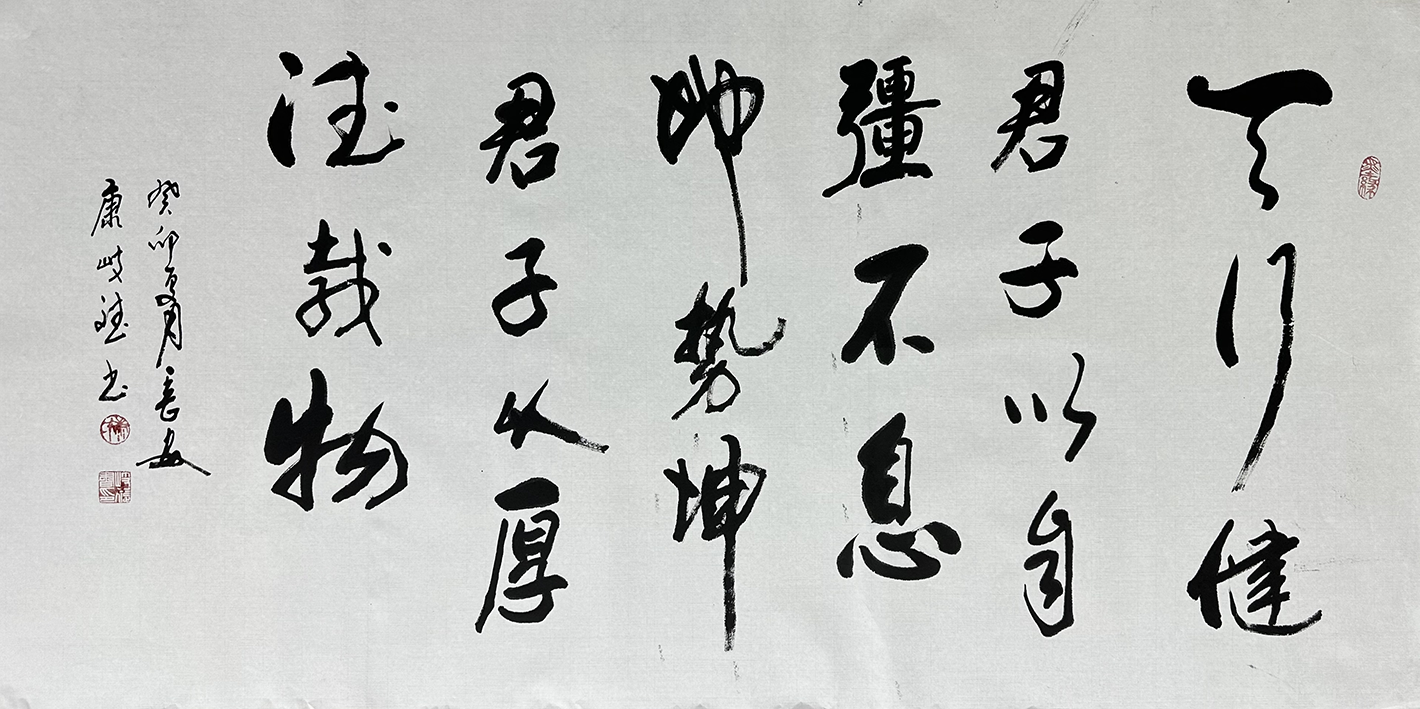 天行健
君子以自
彊不息
地勢坤
君子以厚
德載物
癸卯夏月長安
康岐書